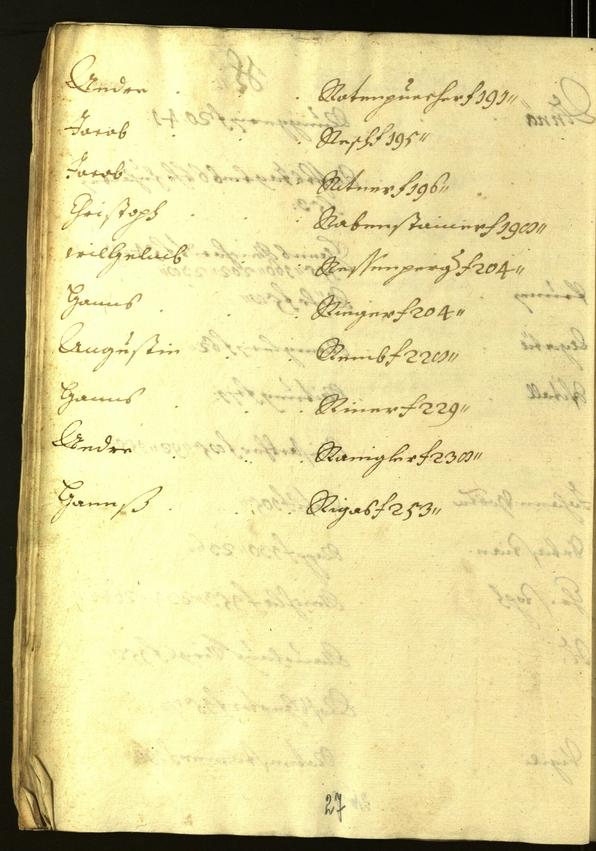 Andre . . Rotenpuecher f 191"
Jacob . . Resch f 195"
Jacob . . Ritner f 196"
Christoph . Rabenstainer f 1900"
Wilhelmb . Ressenperg f 204"
Hanns . . Rieger f 204"
Augustin . Remb f 2200"
Hanns . . Riner f 229"
Andre . . Rainigler f 2300"
Hannß . . Rigas f 253"
27